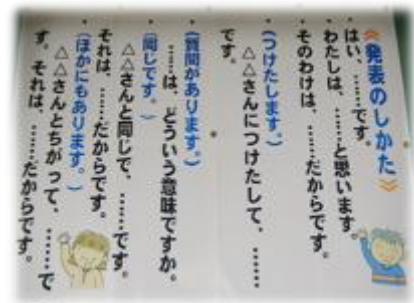 ≪発表のしかた≫
・はい、……です。
・わたしは、……と思います。
・そのわけは、……だからです。
・（つけたします。）
△△さんにつけたして、……
です。
・（質問があります。）
……は、どういう意味ですか。
・（同じです。）
△△さんと同じで、……です。
それは、……だからです。
・（ほかにもあります。）
△△さんとちがって、……で
す。それは、……だからです。